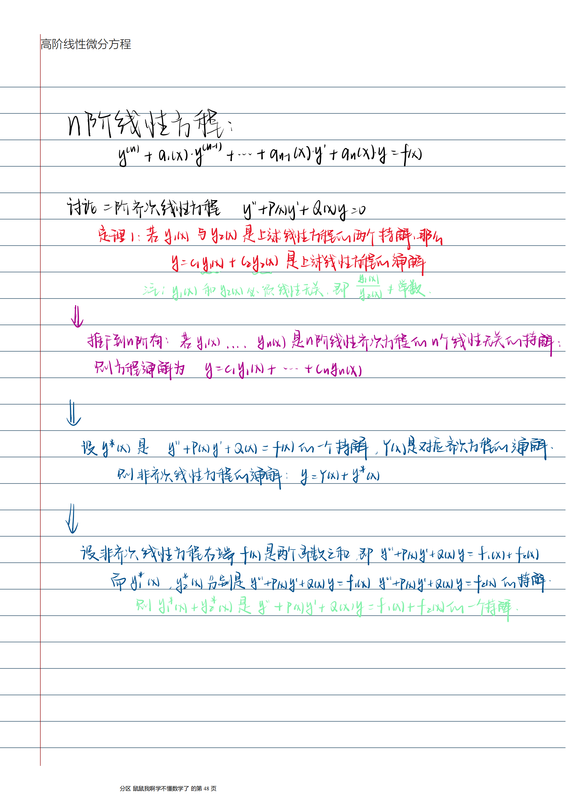 高阶线性微分方程
n阶线性方程:
y⁽ⁿ⁾ + a₁(x)·y⁽ⁿ⁻¹⁾ + ⋯ + aₙ₋₁(x)·y' + aₙ(x)·y = f(x)
讨论二阶齐次线性方程 y''+P(x)y'+Q(x)y=0
定理1: 若 y₁(x) 与 y₂(x) 是上述线性方程的两个特解,那么
y=c₁y₁(x) + c₂y₂(x) 是上述线性方程的通解
注: y₁(x) 和 y₂(x) 必须线性无关, 即 y₁(x)/y₂(x) ≠ 常数.
⇓
推广到n阶有: 若 y₁(x) .... yₙ(x) 是n阶线性齐次方程的 n个线性无关的特解;
则方程通解为 y=c₁y₁(x) + ⋯ + cₙyₙ(x)
⇓
设 y*(x) 是 y''+P(x)y'+Q(x) = f(x) 的一个特解, Y(x)是对应齐次方程的通解.
则非齐次线性方程的通解: y=Y(x)+y*(x)
⇓
设非齐次线性方程右端 f(x)是两个函数之和 即 y''+P(x)y'+Q(x)y=f₁(x)+f₂(x)
而 y₁*(x), y₂*(x) 分别是 y''+P(x)y'+Q(x)y=f₁(x) y''+P(x)y'+Q(x)y=f₂(x) 的特解.
则 y₁*(x)+y₂*(x) 是 y''+P(x)y'+Q(x)y=f₁(x)+f₂(x) 的一个特解.
分区 鼠鼠我啊学不懂数学了 的第 48 页